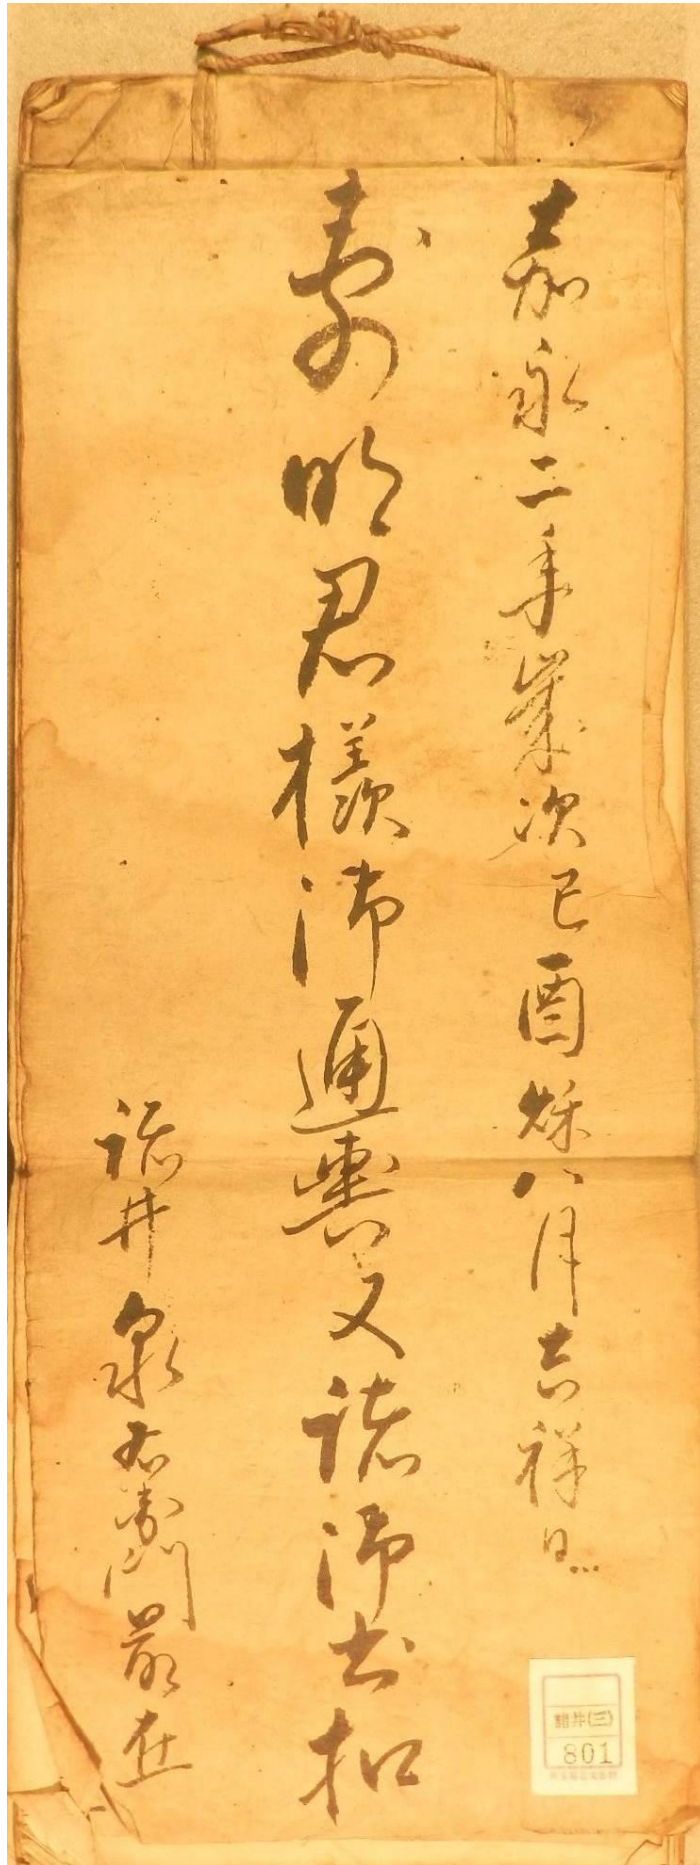 嘉永二年歳次己酉穐八月吉祥日
寿明君様御通輿又諸御書扣
諸井泉右衛門
諸井(三)
801